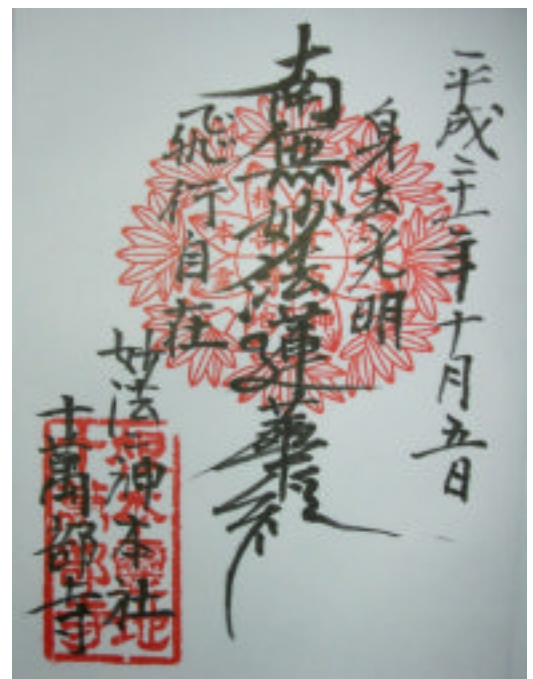 平成二十一年十月五日
身出光明
南無妙法蓮華経
飛行自在
妙法神本社
十萬部寺